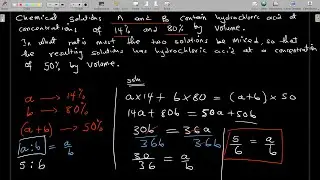 Chemical solutions A and B contain hydrochloric acid at
concentrations of 14% and 80% by volume.
In what ratio must the two solutions be mixed, so that
the resulting solutions has hydrochloric acid at a concentration
of 50% by volume.
a → 14%
b → 80%
(a+b) → 50%
a:b = a/b
5:6
soln
a×14 + b×80 = (a+b)×50
14a + 80b = 50a + 50b
30b/36b = 36a/36b
30/36 = a/b
5/6 = a/b